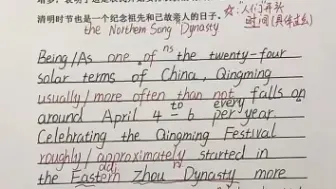 清明时节也是一个纪念祖先和已故亲人的日子。
the Northern Song Dynasty
Being/As one of ns the twenty-four
solar terms of China, Qingming
usually/more often than not falls on
around April 4-6 to every per year.
Celebrating the Qingming Festival
roughly/approximately started in
adj n
the Eastern Zhou Dynasty more